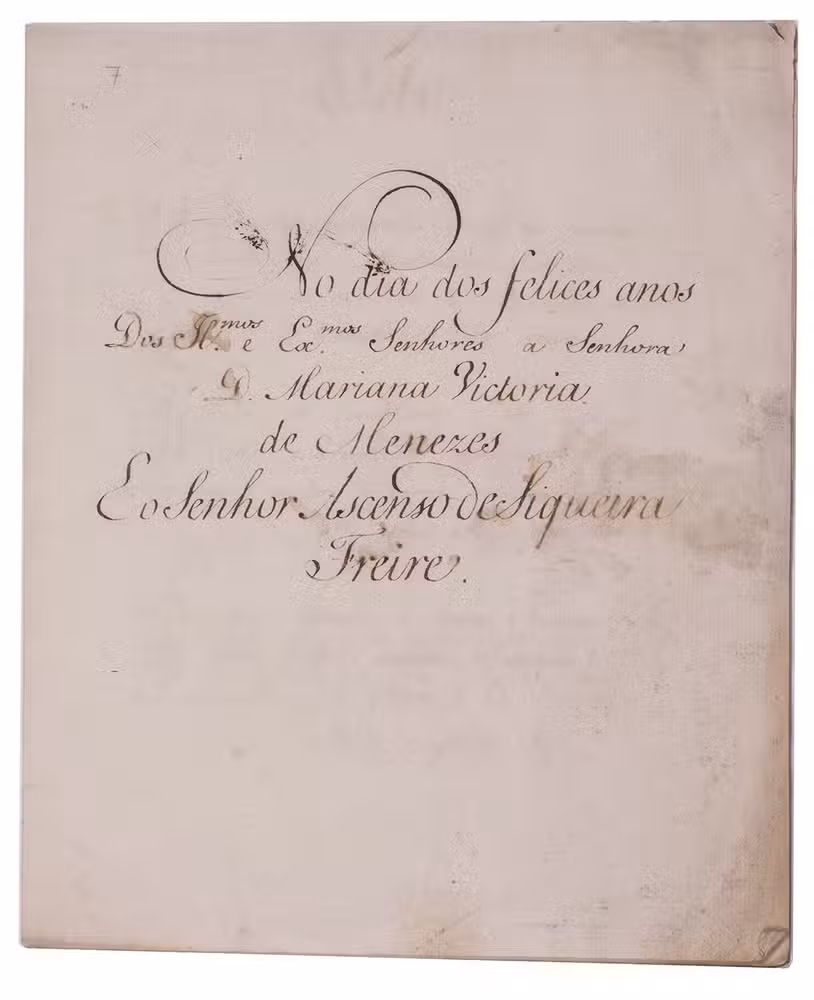 7
No dia dos felices anos
Dos Il.mos e Ex.mos Senhores a Senhora
D. Mariana Victoria
de Menezes
E o Senhor Ascenso de Siqueira
Freire.